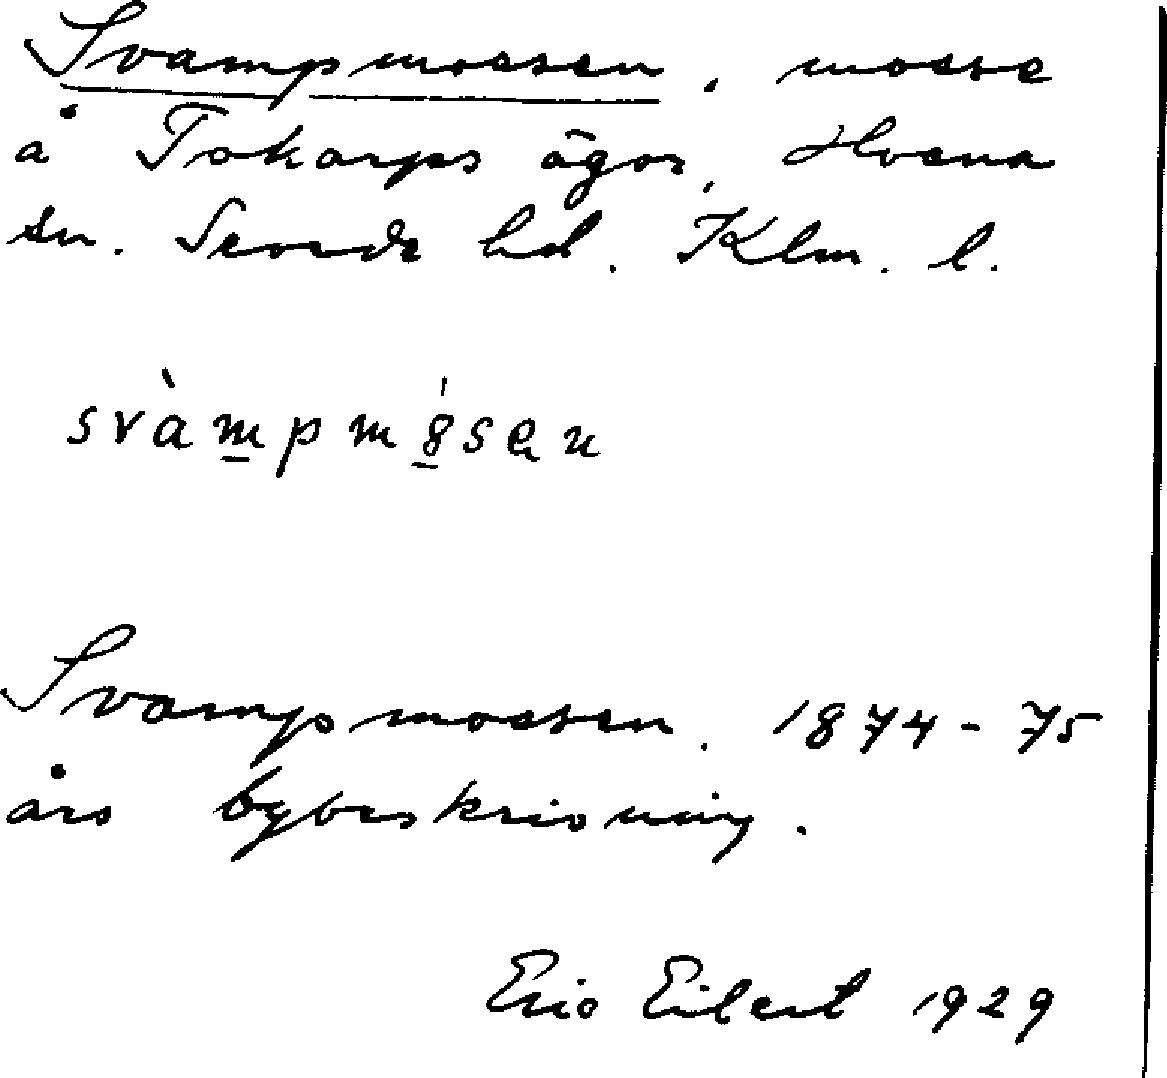 Svampmossen, mosse
å Tokarps ägor, Hvena
sn. Sevede hd. Klm. l.
svàmpmósen
Svampmossen. 1874-75
års bybeskrivning.
Eric Eilert 1929